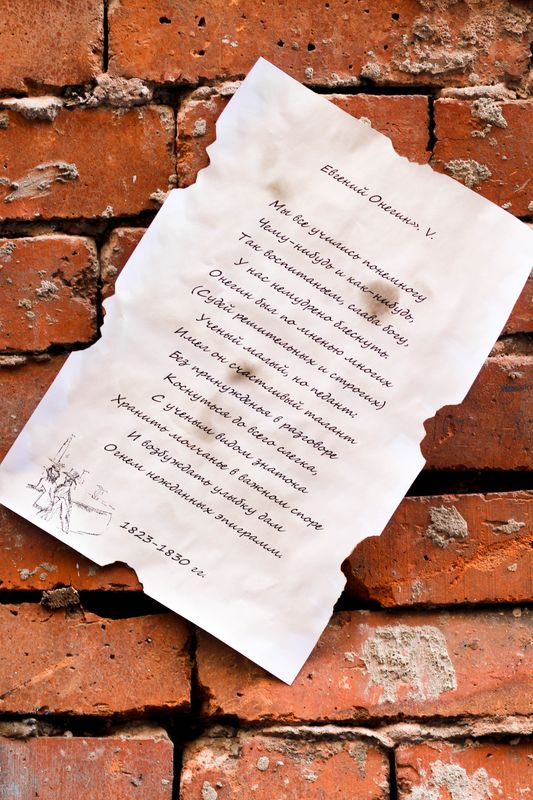 Евгений Онегин», V.
Мы все учились понемногу
Чему-нибудь и как-нибудь,
Так воспитаньем, слава богу,
У нас немудрено блеснуть.
Онегин был по мненью многих
(Судей решительных и строгих)
Ученый малый, но педант:
Имел он счастливый талант
Без принужденья в разговоре
Коснуться до всего слегка,
С ученым видом знатока
Хранить молчанье в важном споре
И возбуждать улыбку дам
Огнем нежданных эпиграмм.
1823-1830 гг.